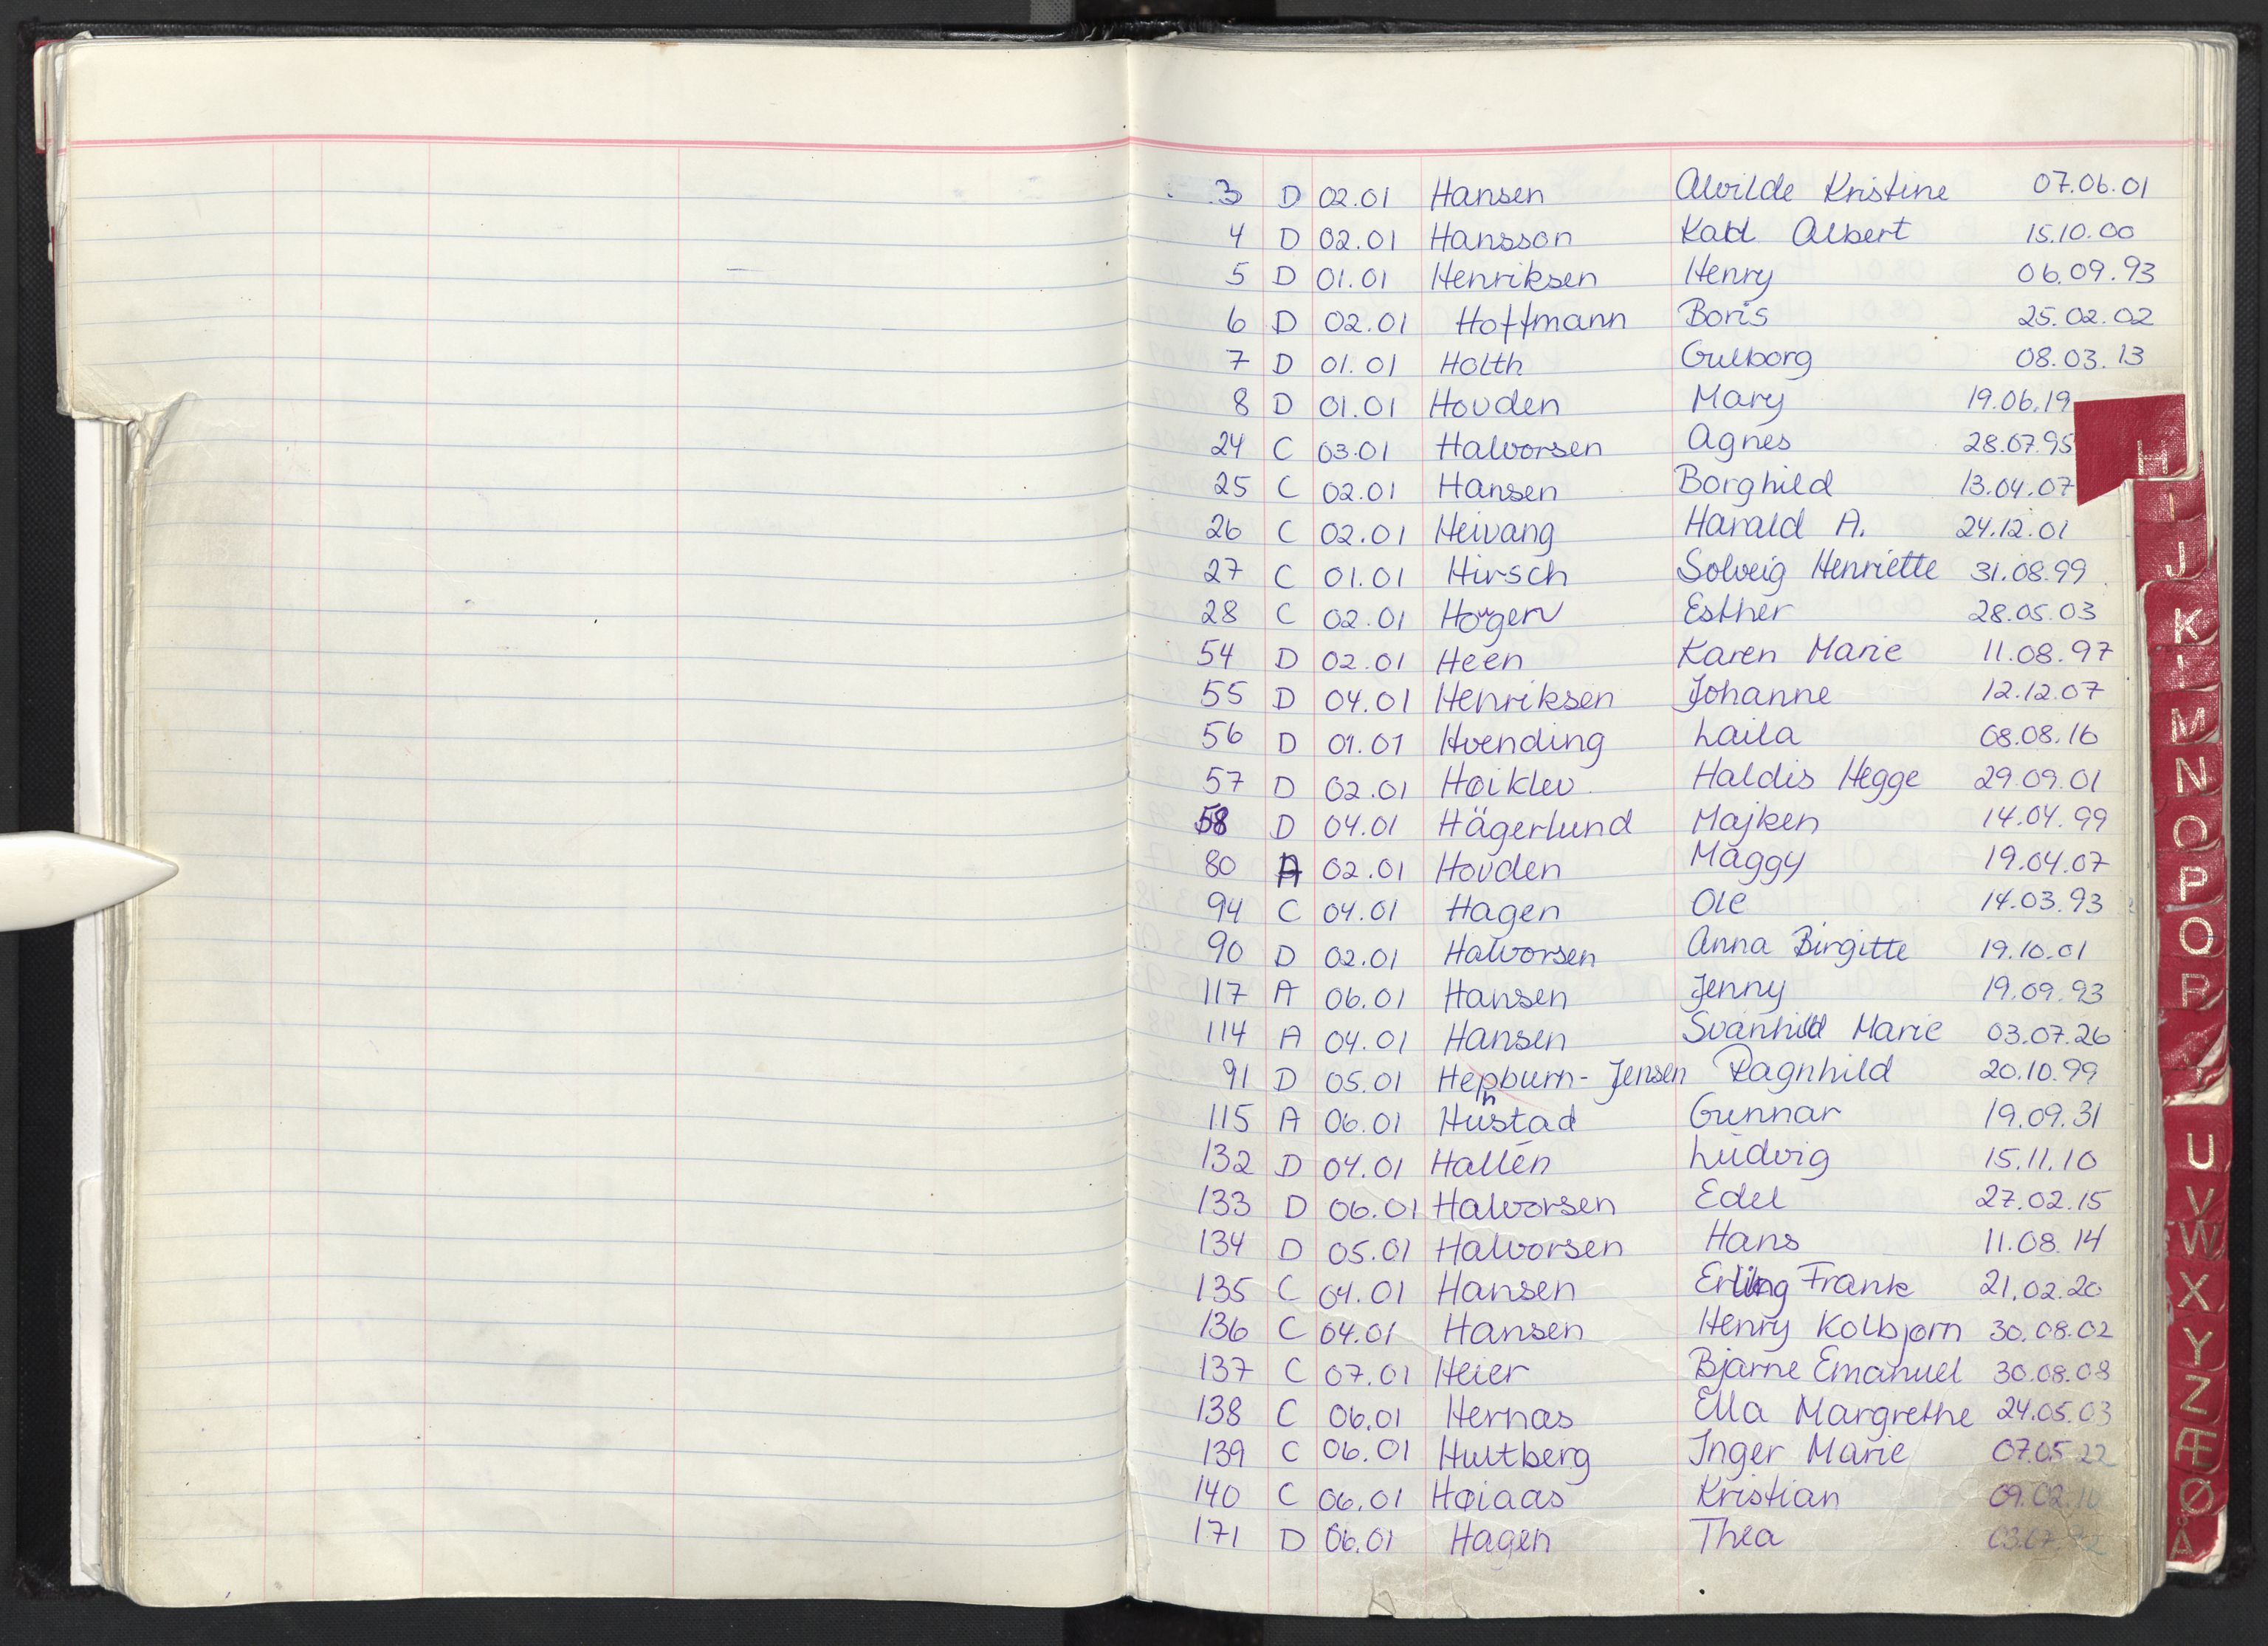 3 D 02.01 Hansen Alvilde Kristine 07.06.01
4 D 02.01 Hansson Karl Albert 15.10.00
5 D 01.01 Henriksen Henry 06.09.93
6 D 02.01 Hoffmann Boris 25.02.02
7 D 01.01 Holth Gulborg 08.03.13
8 D 01.01 Hovden Mary 19.06.19
24 C 03.01 Halvorsen Agnes 28.07.95
25 C 02.01 Hansen Borghild 13.04.07
26 C 02.01 Heivang Harald A. 24.12.01
27 C 01.01 Hirsch Solveig Henriette 31.08.99
28 C 02.01 Esther 28.05.03
54 D 02.01 Heen Karen Marie 11.08.97
55 D 04.01 Henriksen Johanne 12.12.07
56 D 01.01 Hvending Laila 08.08.16
57 D 02.01 Høiklev Haldis Hegge 29.09.01
58 D 04.01 Hägerlund Majken 14.04.99
80 A 02.01 Hovden Maggy 19.04.07
94 C 04.01 Hagen Ole 14.03.93
90 D 02.01 Halvorsen Anna Birgitte 19.10.01
117 A 06.01 Hansen Jenny 19.09.93
114 A 04.01 Hansen Svanhild Marie 03.07.26
91 D 05.01 Hepburn-Jensen Ragnhild 20.10.99
115 A 06.01 Hustad Gunnar 19.09.31
132 D 04.01 Hallén Ludvig 15.11.10
133 D 06.01 Halvorsen Edel 27.02.15
134 D 05.01 Halvorsen Hans 11.08.14
135 C 04.01 Hansen Erling Frank 21.02.20
136 C 04.01 Hansen Henry Kolbjørn 30.08.02
137 C 07.01 Heier Bjarne Emanuel 30.08.08
138 C 06.01 Hernas Ella Margrethe 24.05.03
139 C 06.01 Hultberg Inger Marie 07.05.22
140 C 06.01 Høiaas Kristian 09.02
171 D 06.01 Hagen Thea 03.07
H
I
J
K
M
N
O
P
Q
R
U
V
W
X
Y
Z
Æ
Ø
Å